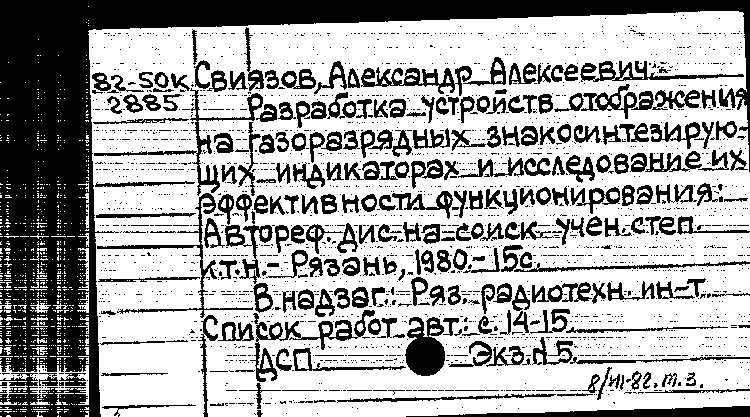 82-50к Свиязов, Александр Алексеевич.
2885 Разработка устройств отображения
на газоразрядных знакосинтезирую-
щих индикаторах и исследование их
эффективности функционирования:
Автореф. дис. на соиск. учен. степ.
к.т.н. - Рязань, 1980. - 15с.
В надзаг.: Ряз. радиотехн. ин-т
Список работ авт.: с. 14-15.
ДСП. Экз. № 5.